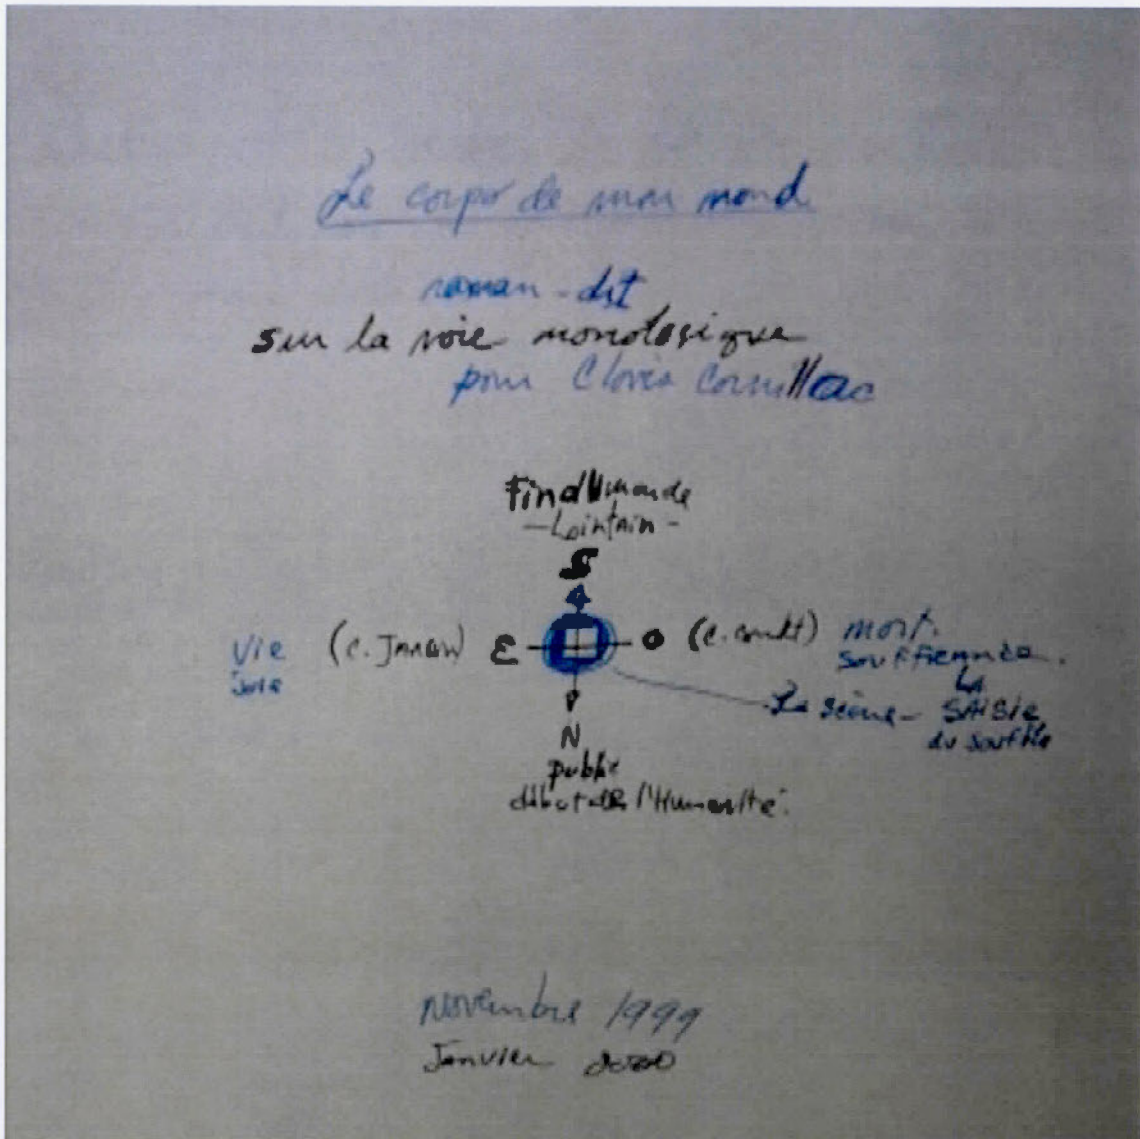 Le corps de mon mond
roman-dit
sur la voie monologique
pour Clovis Cornillac
Fin du monde
- Lointain -
S
Vie (c. Jardin) E O mort.
Joie souffrance.
La scène - La
SAISIE
du souffle
N
public
début de l'Humanité.
Novembre 1999
Janvier 2000